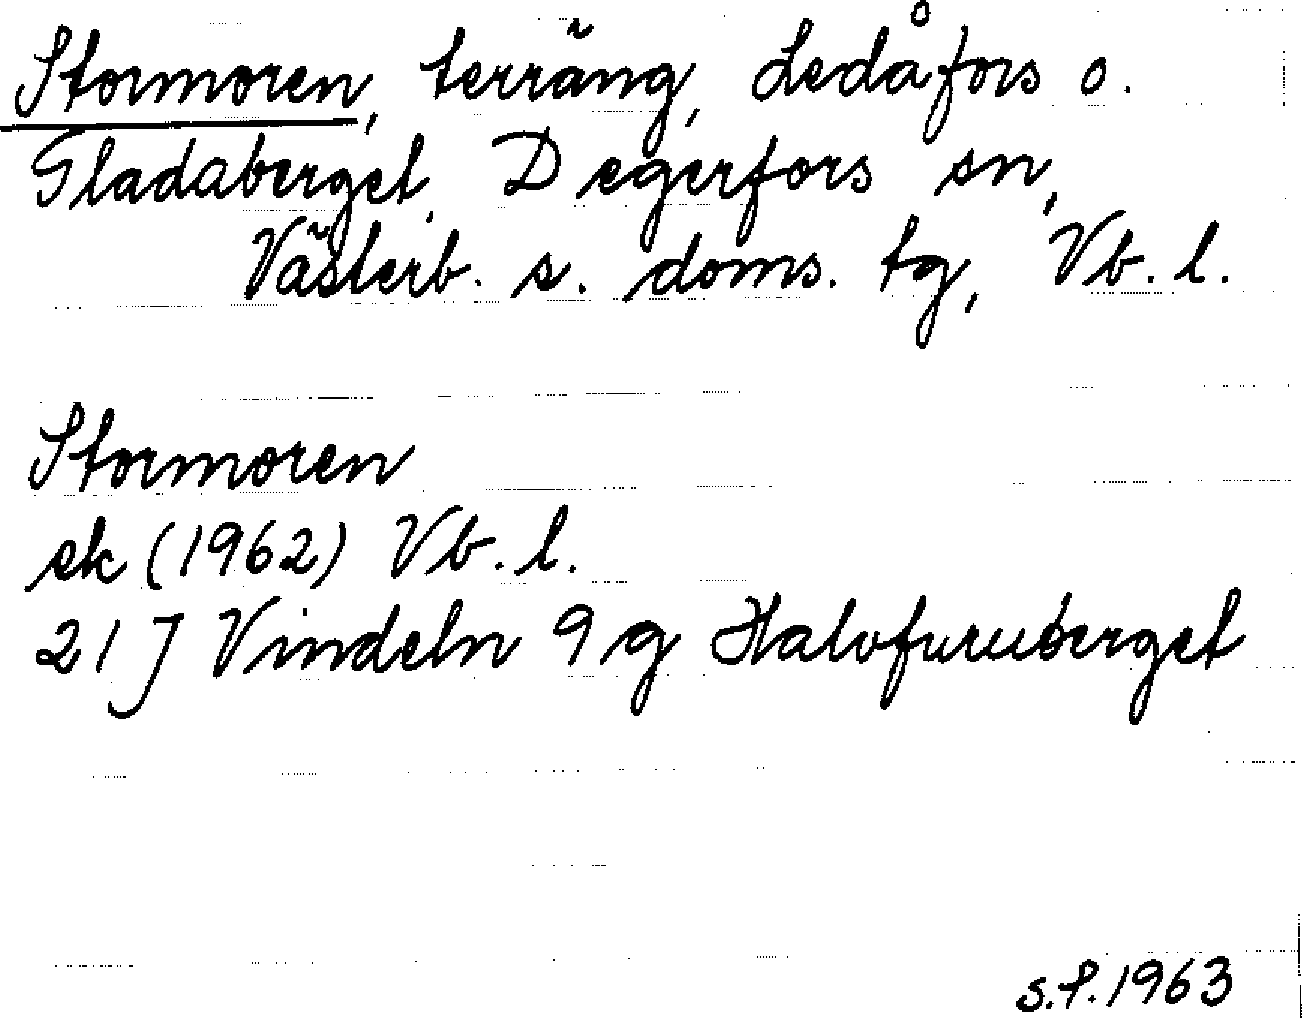 Stormoren, terräng, Ledåfors o.
Gladaberget, Degerfors sn,
Västerb. s. doms. tg, Vb. l.
Stormoren
ek (1962) Vb. l.
21 J Vindeln 9 g Halvfuruberget
s.f. 1963